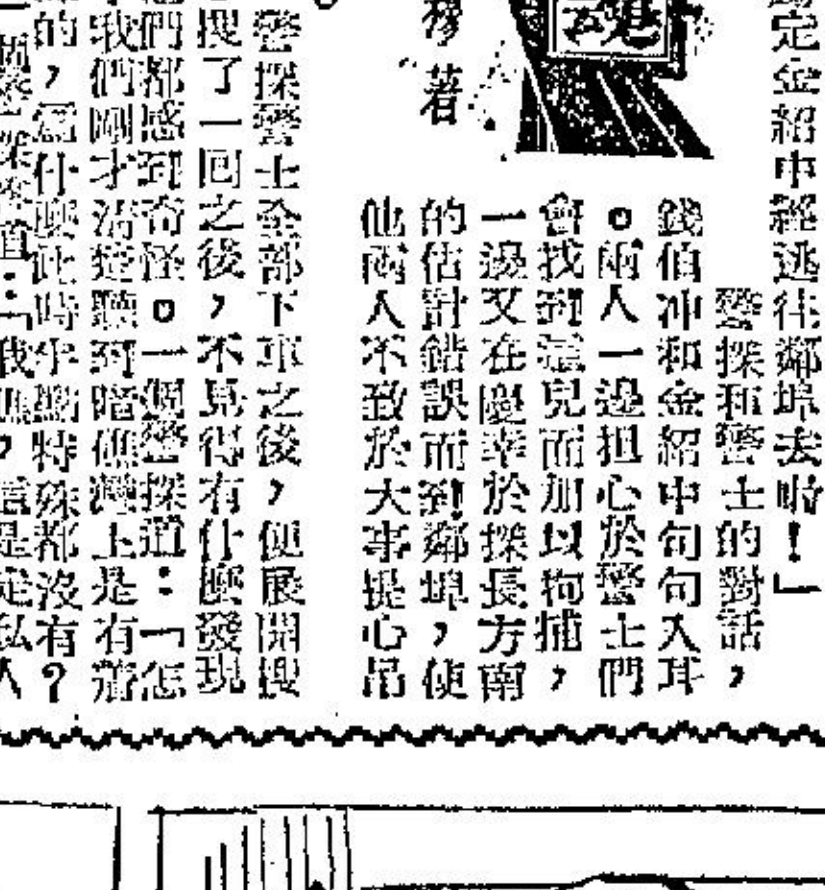 定金紹申經逃往鄰埠去啦！」
警探和警士的對話，
錢伯冲和金紹申句句入耳
。兩人一邊担心於警士們
會找到這兒而加以拘捕，
一邊又在慶幸於探長方南
的估計錯誤而到鄰埠，使
他兩人不致於大事提心吊
魂
穆 著
。
警探警士全部下車之後，便展開搜
搜了一回之後，不見得有什麼發現
們都感到奇怪。一個警探道：「怎
我們剛才清楚聽到暗礁灣上是有
的，為什麼此時半點特殊都沒有？
一個警探道：「我，這是走私人